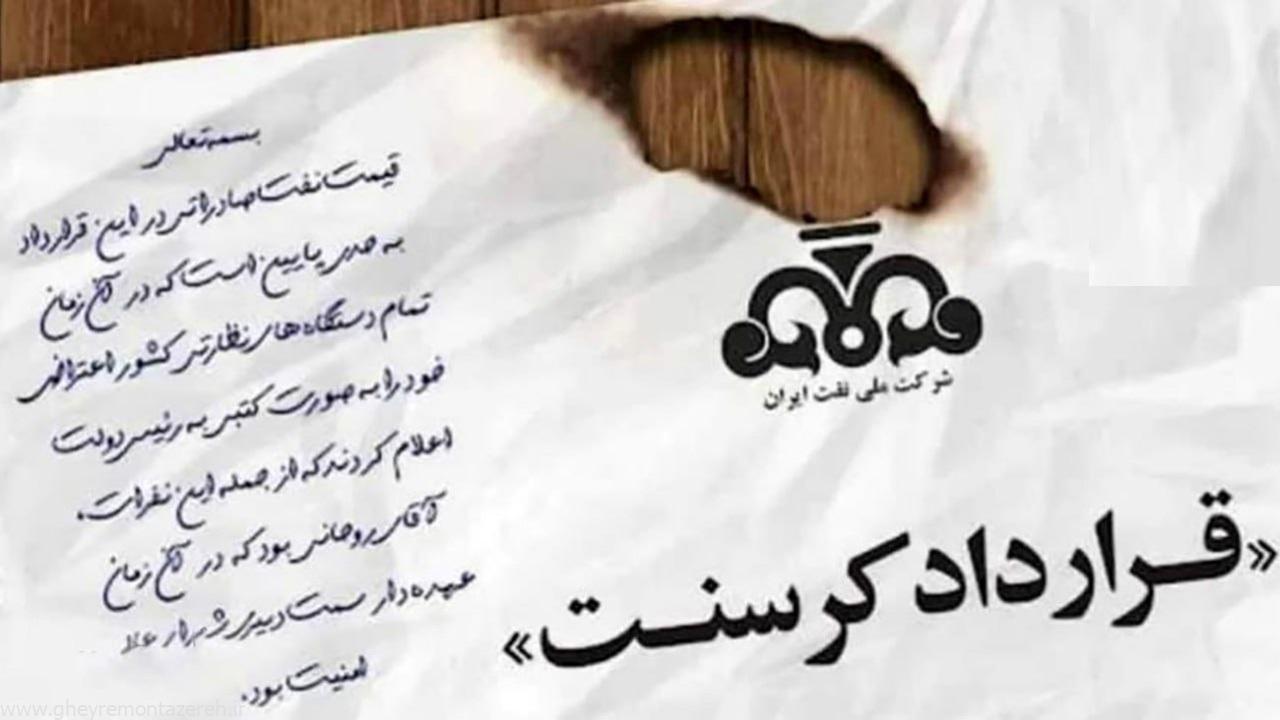 بسمه تعالی
قیمت نفت صادراتی در این قرارداد
به حدی پایین است که در آن زمان
تمام دستگاه های نظارتی کشور اعتراض
خود را به صورت کتبی به رئیس دولت
اعلام کردند که از جمله این نفرات،
آقای روحانی بود که در آن زمان
عهده دار سمت دبیری شورای عالی
امنیت بود.
شرکت ملی نفت ایران
«قرارداد کرسنت»
www.gheyremontazereh.ir